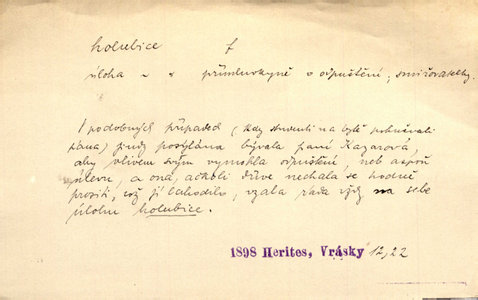 holubice f
úloha ~ přímluvkyně o odpuštění, smiřovatelky.
V podobných případech (kdy studenti na bytě pohněvali
pána) jindy posýlána bývala paní Kazarová,
aby vlivem svým vymohla odpuštění, neb aspoň
úlevu, a ona, ačkoli dříve nechala se hodně
prositi, což jí lahodilo, vzala ráda vždy na sebe
úlohu holubice.
1898 Herites, Vrásky 12,22